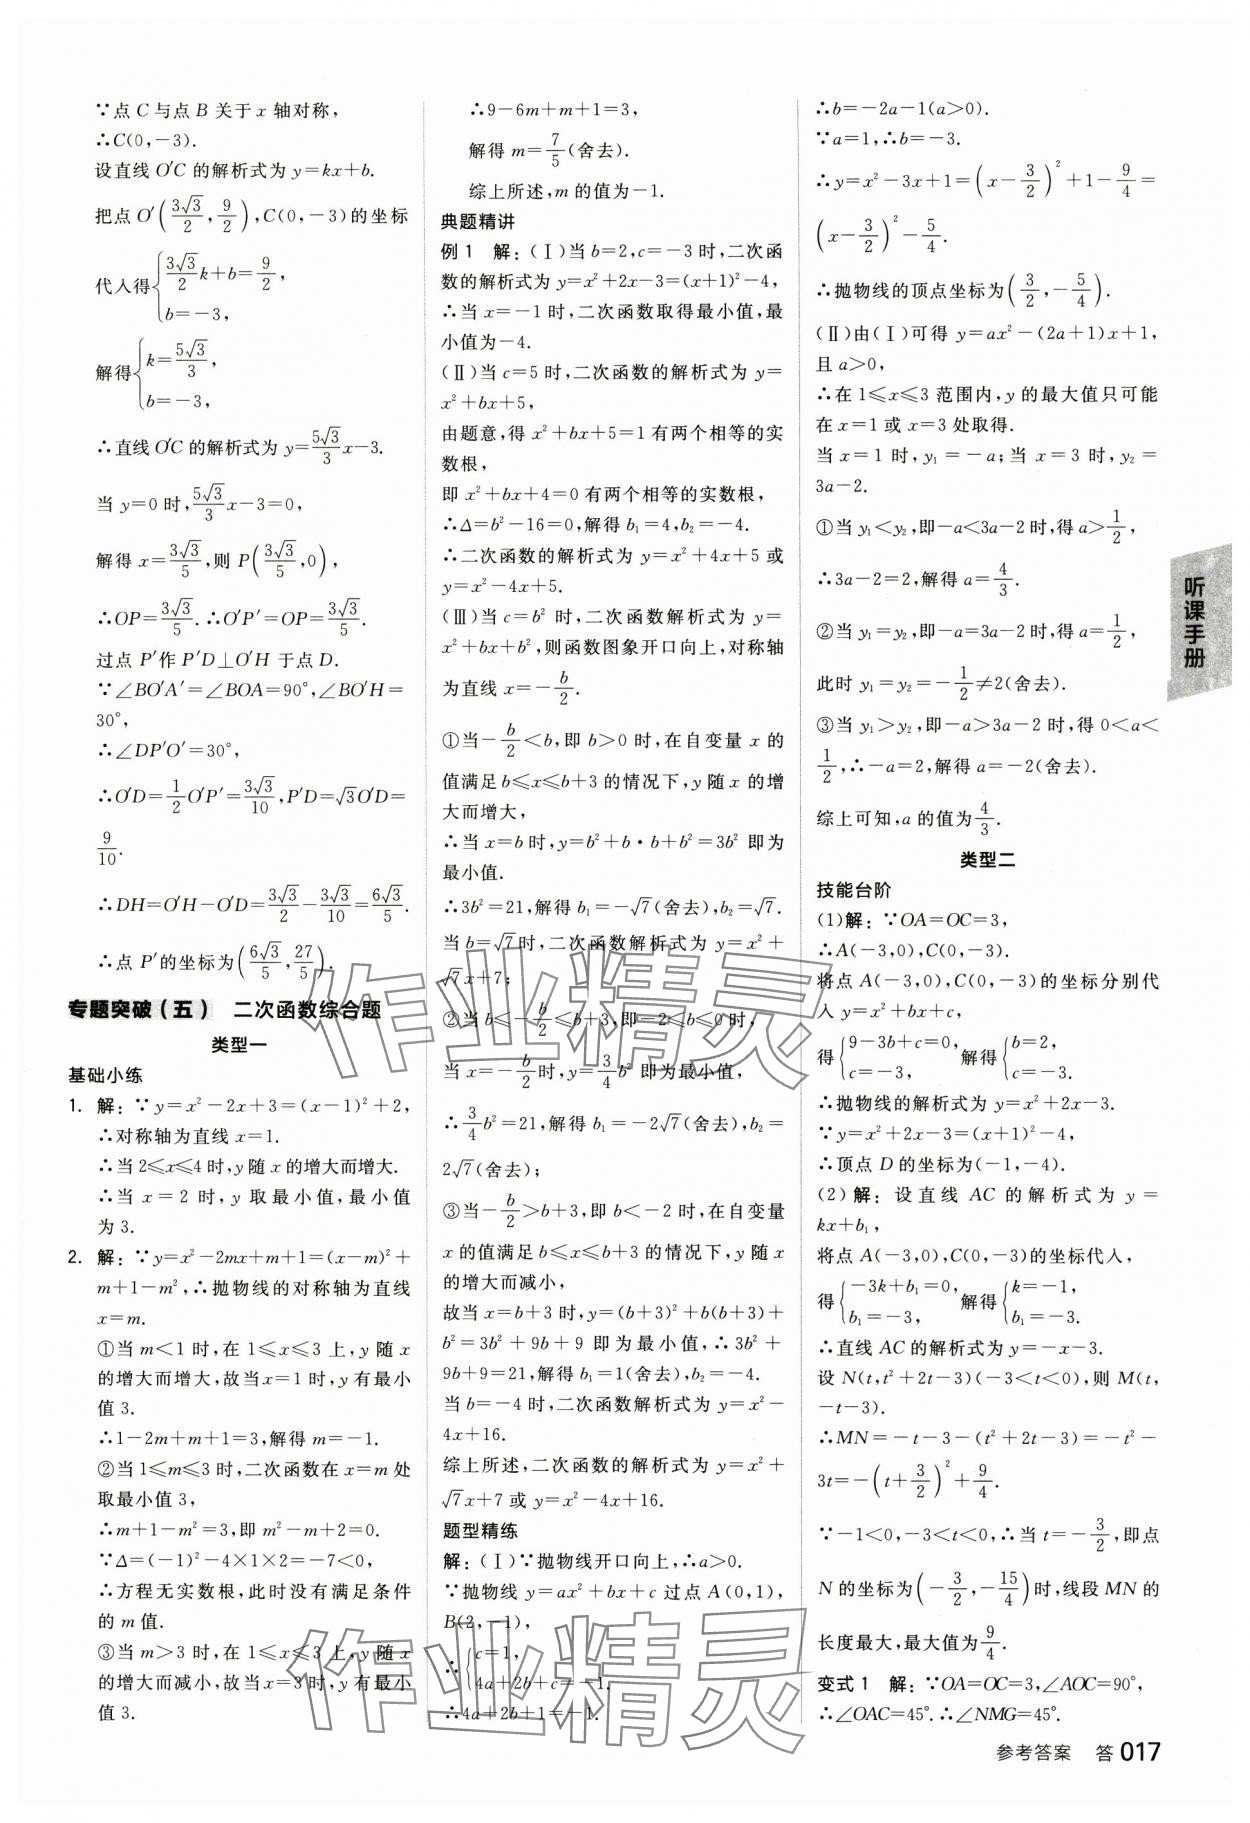 ∵点 C 与点 B 关于 x 轴对称,
∴C(0,-3).
设直线 O′C 的解析式为 y=kx+b.
把点 O′(3√3/2,9/2),C(0,-3)的坐标
代入得{3√3/2 k+b=9/2, b=-3,
解得{k=5√3/3, b=-3,
∴直线 O′C 的解析式为 y=5√3/3 x-3.
当 y=0 时,5√3/3 x-3=0,
解得 x=3√3/5,则 P(3√3/5,0),
∴OP=3√3/5.∴O′P′=OP=3√3/5.
过点 P′作 P′D⊥O′H 于点 D.
∵∠BO′A′=∠BOA=90°,∠BO′H=
30°,
∴∠DP′O′=30°,
∴O′D=1/2 O′P′=3√3/10,P′D=√3O′D=
9/10.
∴DH=O′H-O′D=3√3/2-3√3/10=6√3/5.
∴点 P′的坐标为(6√3/5,27/5).
专题突破(五) 二次函数综合题
类型一
基础小练
1. 解:∵y=x²-2x+3=(x-1)²+2,
∴对称轴为直线 x=1.
∴当 2≤x≤4 时,y 随 x 的增大而增大.
∴当 x=2 时,y 取最小值,最小值
为 3.
2. 解:∵y=x²-2mx+m+1=(x-m)²+
m+1-m²,∴抛物线的对称轴为直线
x=m.
①当 m<1 时,在 1≤x≤3 上,y 随 x
的增大而增大,故当 x=1 时,y 有最小
值 3.
∴1-2m+m+1=3,解得 m=-1.
②当 1≤m≤3 时,二次函数在 x=m 处
取最小值 3,
∴m+1-m²=3,即 m²-m+2=0.
∵Δ=(-1)²-4×1×2=-7<0,
∴方程无实数根,此时没有满足条件
的 m 值.
③当 m>3 时,在 1≤x≤3 上,y 随 x
的增大而减小,故当 x=3 时,y 有最小
值 3.
∴9-6m+m+1=3,
解得 m=7/5(舍去).
综上所述,m 的值为-1.
典题精讲
例 1 解:(Ⅰ)当 b=2,c=-3 时,二次函
数的解析式为 y=x²+2x-3=(x+1)²-4,
∴当 x=-1 时,二次函数取得最小值,最
小值为-4.
(Ⅱ)当 c=5 时,二次函数的解析式为 y=
x²+bx+5,
由题意,得 x²+bx+5=1 有两个相等的实
数根,
即 x²+bx+4=0 有两个相等的实数根,
∴Δ=b²-16=0,解得 b₁=4,b₂=-4.
∴二次函数的解析式为 y=x²+4x+5 或
y=x²-4x+5.
(Ⅲ)当 c=b² 时,二次函数解析式为 y=
x²+bx+b²,则函数图象开口向上,对称轴
为直线 x=-b/2.
①当-b/2<b,即 b>0 时,在自变量 x 的
值满足 b≤x≤b+3 的情况下,y 随 x 的增
大而增大,
∴当 x=b 时,y=b²+b·b+b²=3b² 即为
最小值.
∴3b²=21,解得 b₁=-√7(舍去),b₂=√7.
当 b=√7时,二次函数解析式为 y=x²+
√7x+7;
②当 b≤-b/2≤b+3,即-2≤b≤0 时,
当 x=-b/2时,y=3/4 b² 即为最小值,
∴3/4 b²=21,解得 b₁=-2√7(舍去),b₂=
2√7(舍去);
③当-b/2>b+3,即 b<-2 时,在自变量
x 的值满足 b≤x≤b+3 的情况下,y 随 x
的增大而减小,
故当 x=b+3 时,y=(b+3)²+b(b+3)+
b²=3b²+9b+9 即为最小值,∴3b²+
9b+9=21,解得 b₁=1(舍去),b₂=-4.
当 b=-4 时,二次函数解析式为 y=x²-
4x+16.
综上所述,二次函数的解析式为 y=x²+
√7x+7 或 y=x²-4x+16.
题型精练
解:(Ⅰ)∵抛物线开口向上,∴a>0.
∵抛物线 y=ax²+bx+c 过点 A(0,1),
B(2,-1),
∴{c=1, 4a+2b+c=-1.
∴4a+2b+1=-1.
∴b=-2a-1(a>0).
∵a=1,∴b=-3.
∴y=x²-3x+1=(x-3/2)²+1-9/4=
(x-3/2)²-5/4.
∴抛物线的顶点坐标为(3/2,-5/4).
(Ⅱ)由(Ⅰ)可得 y=ax²-(2a+1)x+1,
且 a>0,
∴在 1≤x≤3 范围内,y 的最大值只可能
在 x=1 或 x=3 处取得.
当 x=1 时,y₁=-a;当 x=3 时,y₂=
3a-2.
①当 y₁<y₂,即-a<3a-2 时,得 a>1/2,
∴3a-2=2,解得 a=4/3.
②当 y₁=y₂,即-a=3a-2 时,得 a=1/2,
此时 y₁=y₂=-1/2≠2(舍去).
③当 y₁>y₂,即-a>3a-2 时,得 0<a<
1/2,∴-a=2,解得 a=-2(舍去).
综上可知,a 的值为4/3.
类型二
技能台阶
(1)解:∵OA=OC=3,
∴A(-3,0),C(0,-3).
将点 A(-3,0),C(0,-3)的坐标分别代
入 y=x²+bx+c,
得{9-3b+c=0, c=-3, 解得{b=2, c=-3.
∴抛物线的解析式为 y=x²+2x-3.
∵y=x²+2x-3=(x+1)²-4,
∴顶点 D 的坐标为(-1,-4).
(2)解:设直线 AC 的解析式为 y=
kx+b₁,
将点 A(-3,0),C(0,-3)的坐标代入,
得{-3k+b₁=0, b₁=-3, 解得{k=-1, b₁=-3.
∴直线 AC 的解析式为 y=-x-3.
设 N(t,t²+2t-3)(-3<t<0),则 M(t,
-t-3).
∴MN=-t-3-(t²+2t-3)=-t²-
3t=-(t+3/2)²+9/4.
∵-1<0,-3<t<0,∴当 t=-3/2,即点
N 的坐标为(-3/2,-15/4)时,线段 MN 的
长度最大,最大值为9/4.
变式 1 解:∵OA=OC=3,∠AOC=90°,
∴∠OAC=45°.∴∠NMG=45°.
听课手册
参考答案 答 017
作业精灵
作业精灵